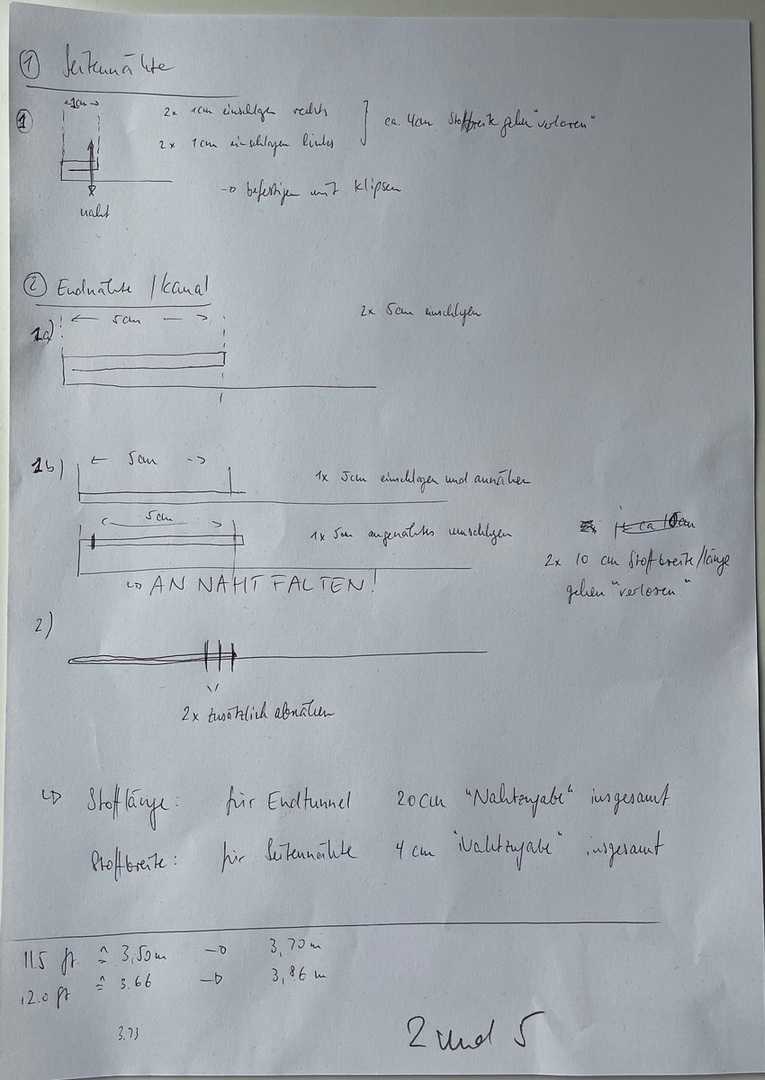 ① Seitennähte
①
← 1cm →
2x 1cm einschlagen rechts
2x 1cm einschlagen links
} ca. 4cm Stoffbreite gehen "verloren"
→ befestigen mit Klipsen
naht
② Endnähte / Kanal
1a)
← 5cm →
2x 5cm einschlagen
1b)
← 5cm →
1x 5cm einschlagen und annähen
← 5cm →
1x 5cm angenähtes umschlagen
↳ AN NAHT FALTEN!
ca 10cm
2x 10 cm Stoffbreite/länge
gehen "verloren"
2)
2x zusätzlich abnähen
↳ Stofflänge: für Endtunnel 20cm "Nahtzugabe" insgesamt
Stoffbreite: für Seitennähte 4 cm "Nahtzugabe" insgesamt
11.5 ft ≙ 3,50m → 3,70m
12.0 ft ≙ 3.66 → 3,86 m
3.73
2 und 5